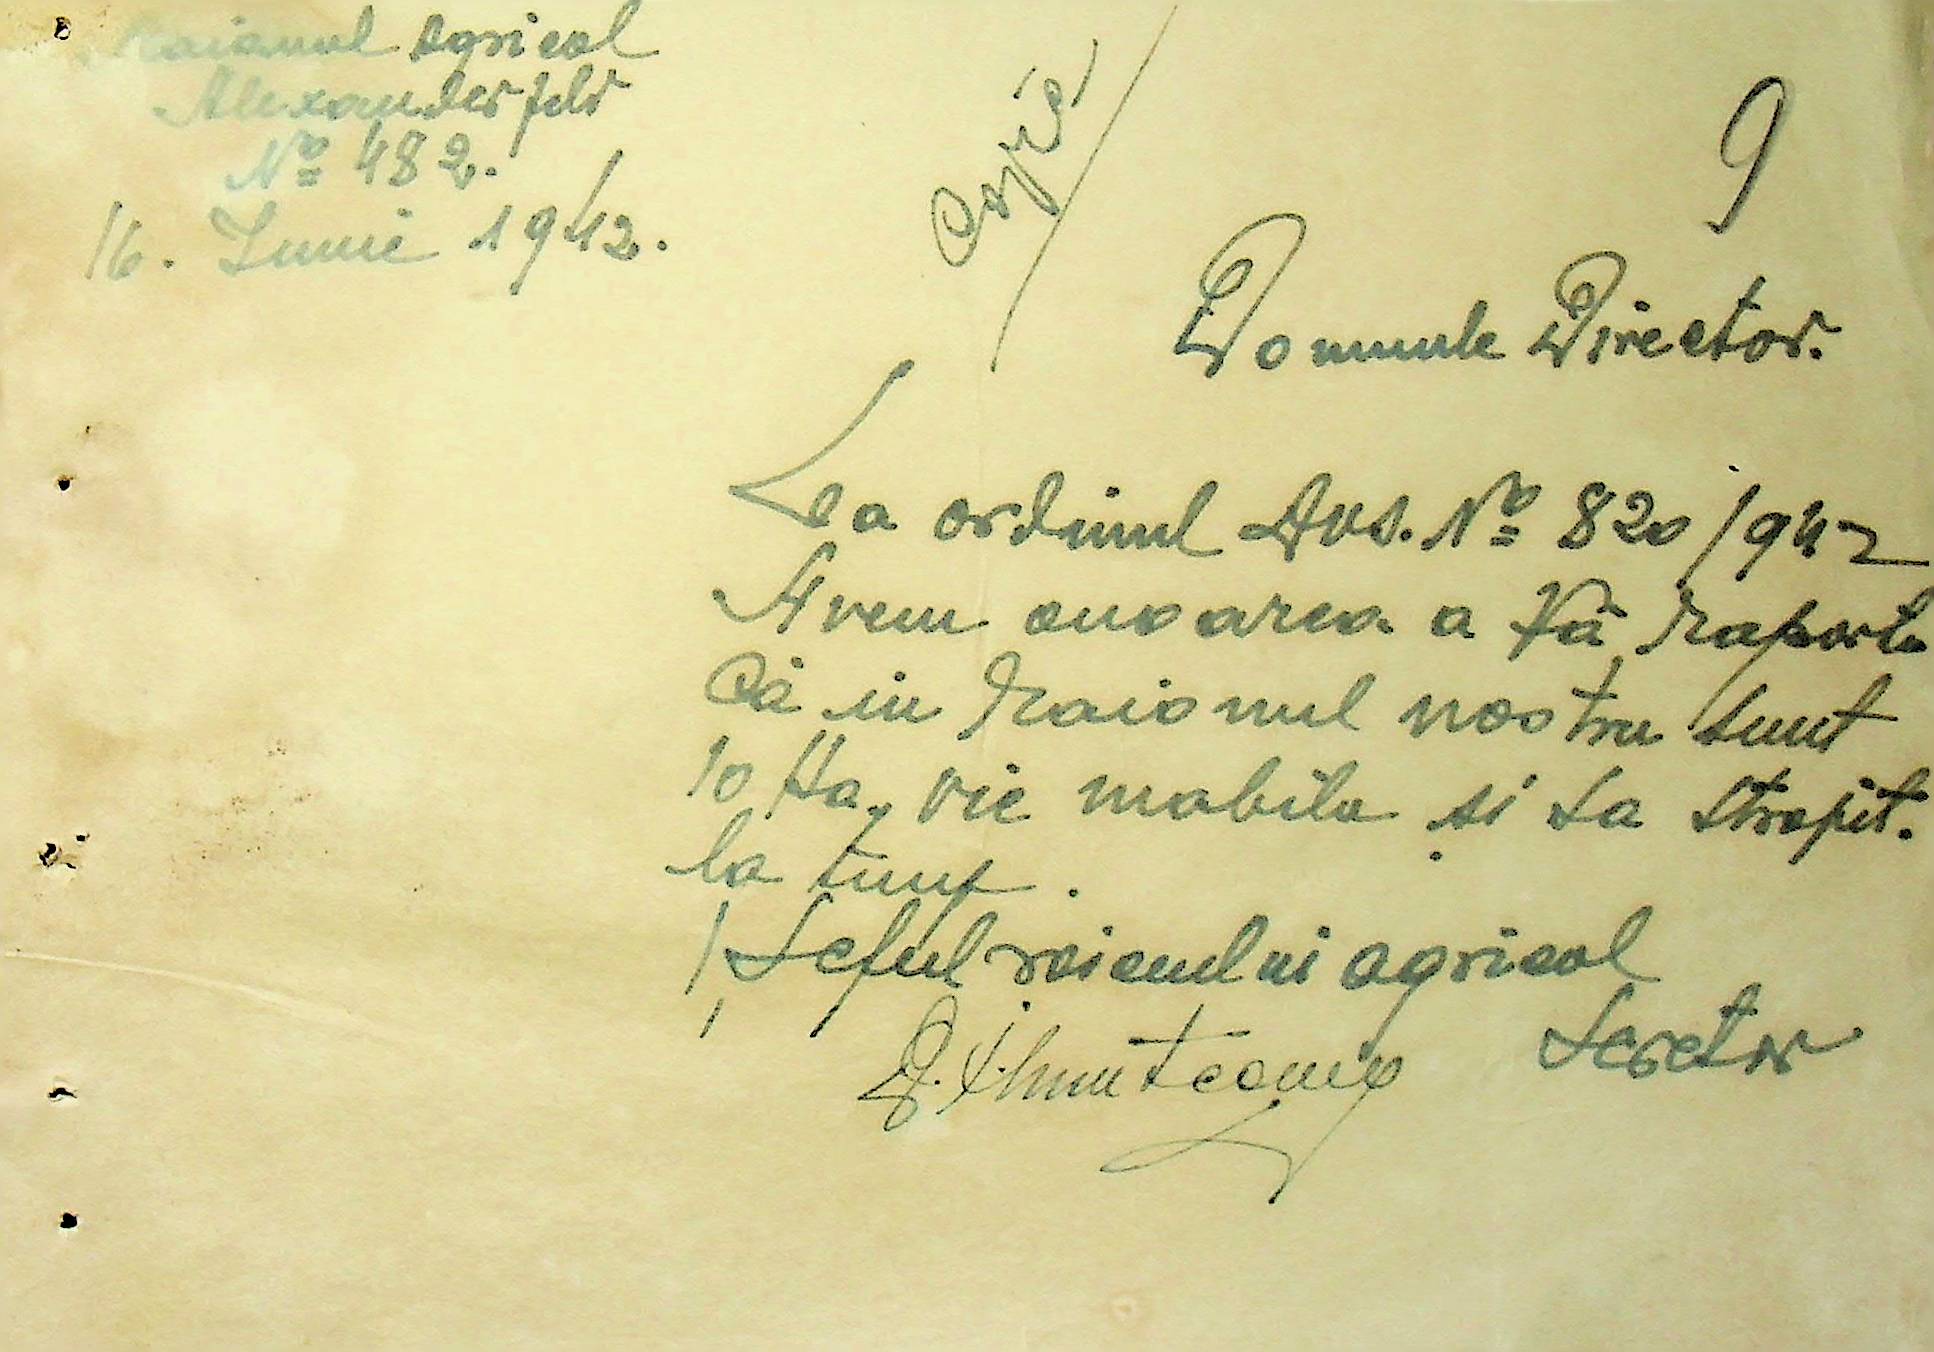 Raionul Agricol
Alexanderfeld
No 482.
16. Iunie 1942.
Copie
9
Domnule Director.
La ordinul Dvs. No 820/942
Avem onoarea a Vă raporta
Că in Raionul nostru sunt
10 Ha, vie nobila si sa stropit.
la timp.
Seful raionului agricol
Secretar